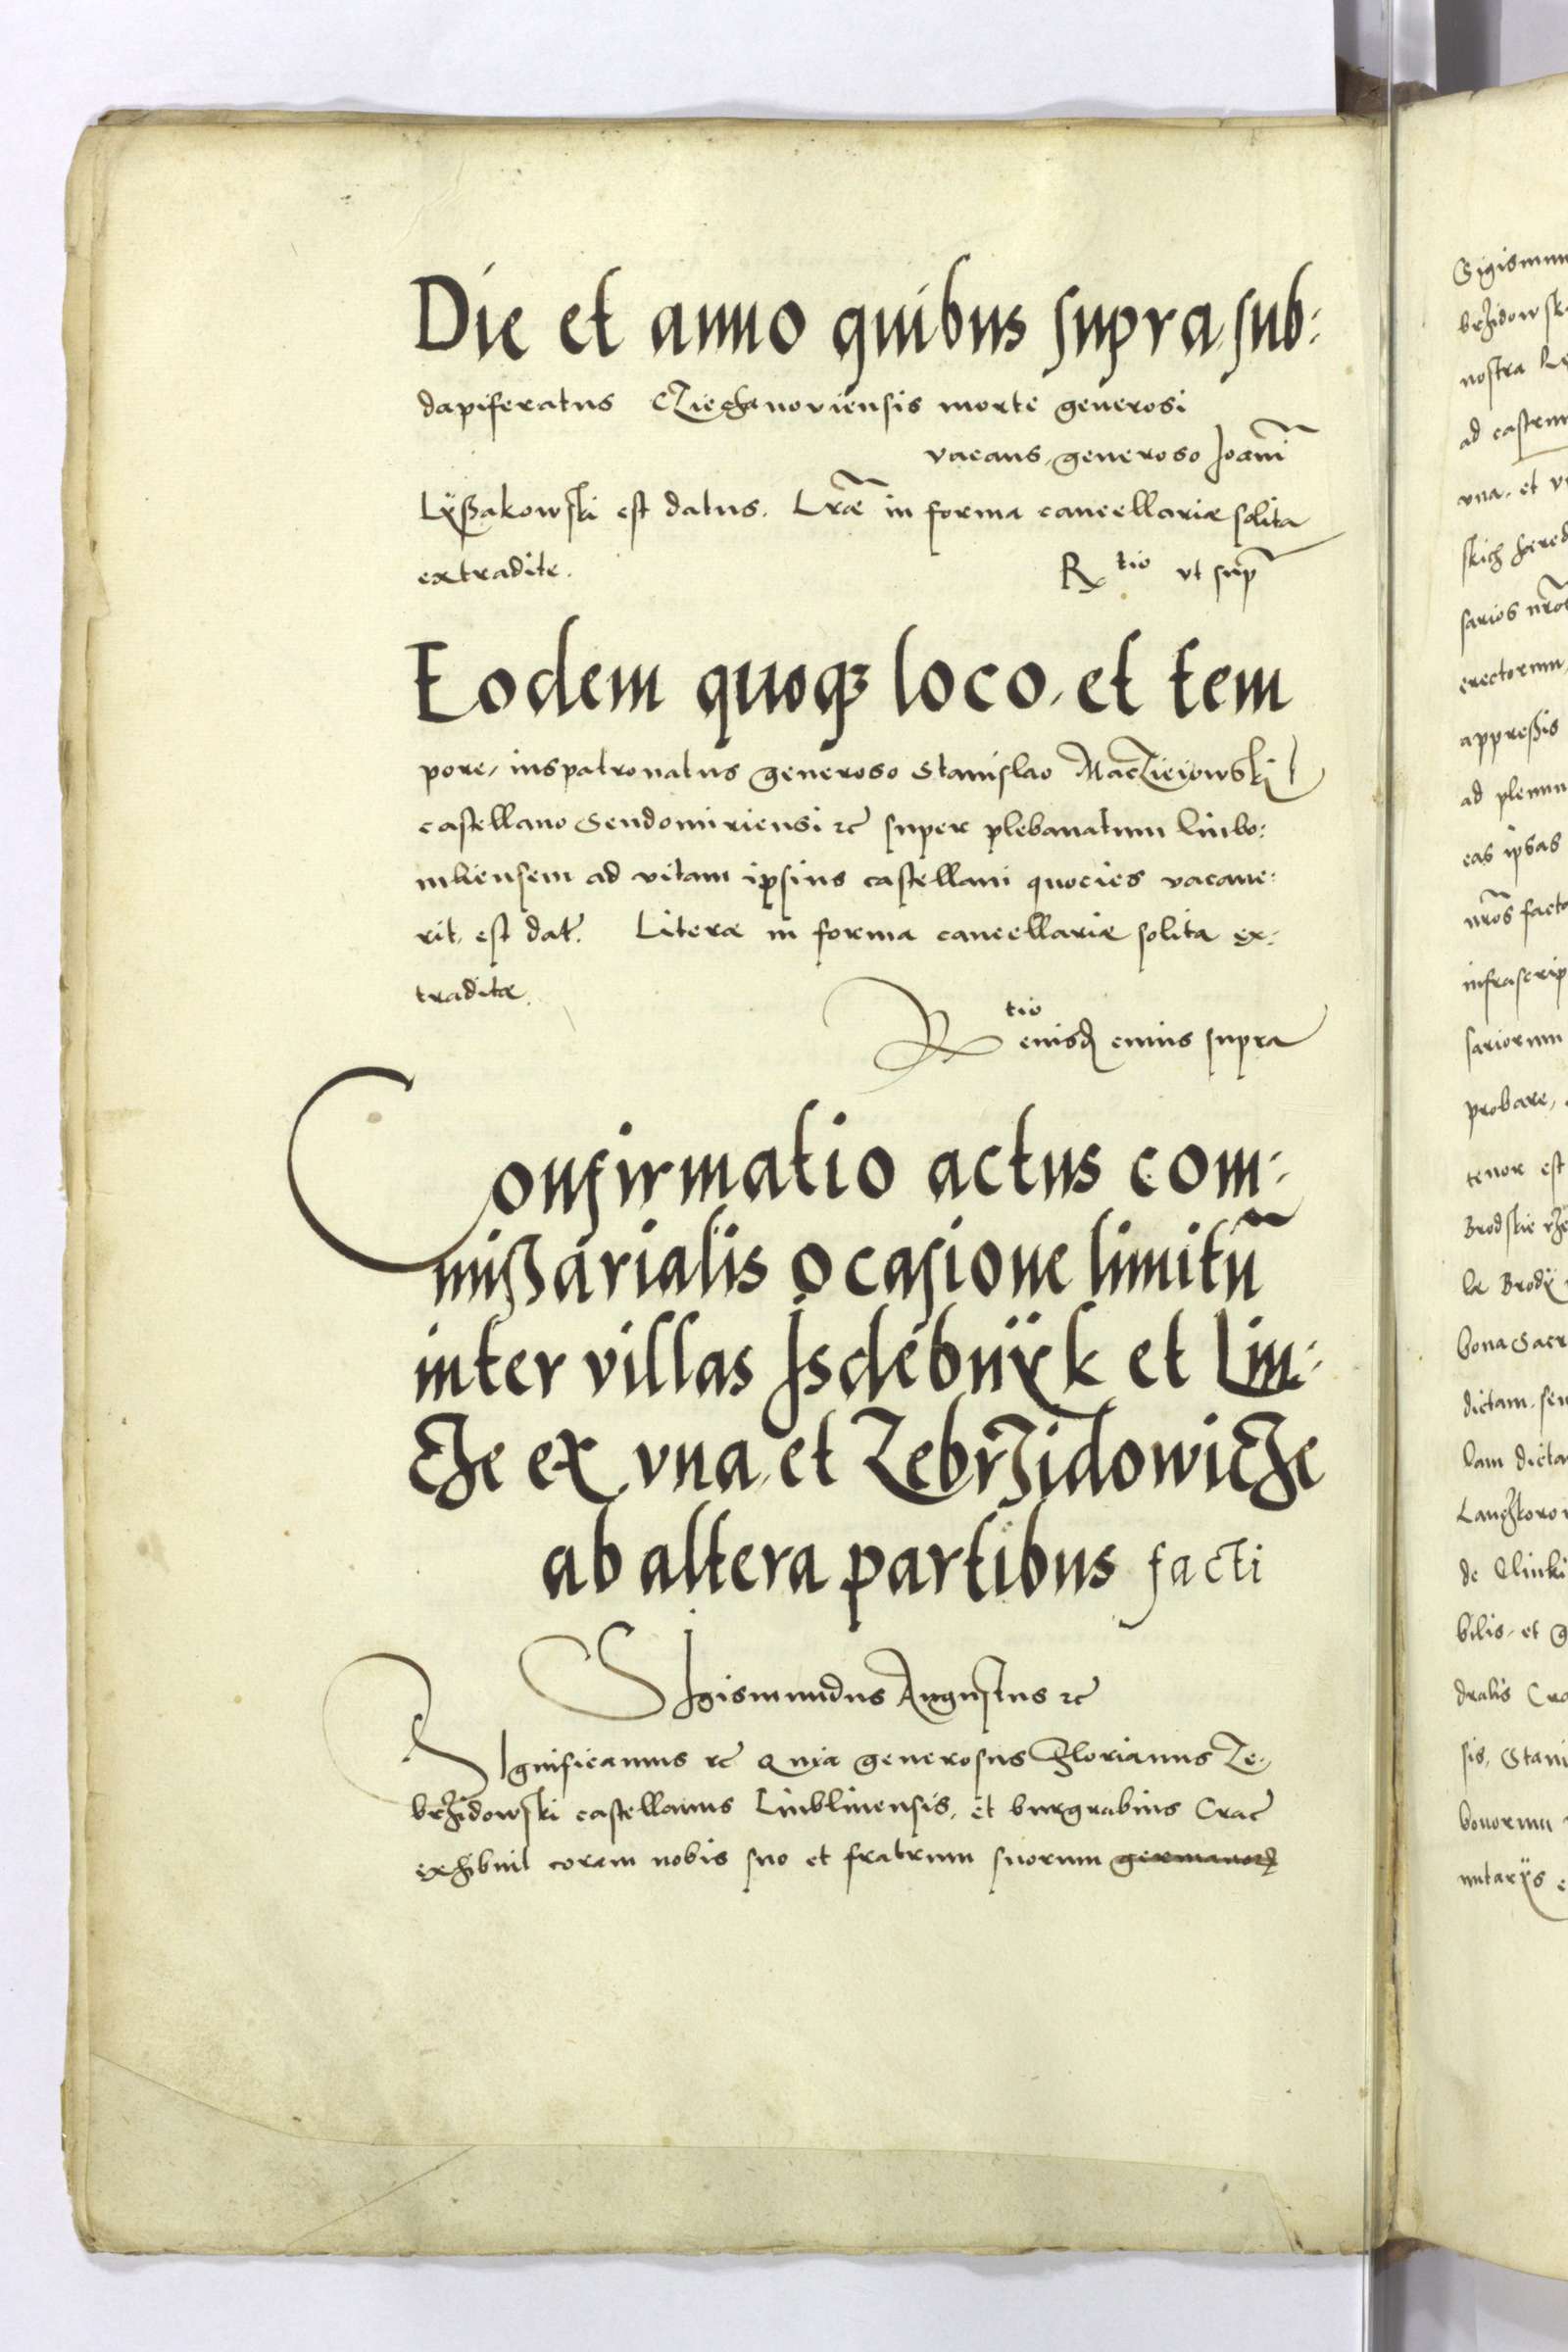 Die et anno quibus supra sub:
dapiferatus Cziechanoviensis morte generosi
vacans, generoso Joanī
Lÿssakowski est datus. Lr̄æ in forma cancellariæ solita
extradite. R tio vt sup̄
Eodem quoqꝫ loco, et tem
pore, iuspatronatus generoso Stanislao Maczieiowski
castellano Sendomiriensi ꝛc super plebanatum Liubo:
mliensem ad vitam ipsius castellani quocies vacaue:
rit, est dat̄. Literæ in forma cancellariæ solita ex:
traditæ.
R tio eiusd cuius supra
Confirmatio actus com:
missarialis ocasione limitū
inter villas Isdebnÿk et Lin:
cze ex vna, et Zebrzidowicze
ab altera partibus facti
Sigismundus Augustus ꝛc
Significamus ꝛc Quia generosus Florianus Ze:
brzidowski castellanus Liublinensis, et burgrabius Crac̄
exhibuit coram nobis suo et fratrum suorum germanorꝫ
Sigismun
brzidowsk
nostra
ad castrum
vna, et
skich hæred
sarios nr̄os
erectorum,
appressis
ad plenum
eas ipsas
nr̄os facto
infrascrip
sariorum
probare,
tenor est
Brodskie
læ Brodÿ
bona Sacr
dictam, seu
lam dicta
Lanczkoro
de
bilis, et G
dralis Cra
sis, Stani
bonorum
mitarÿs